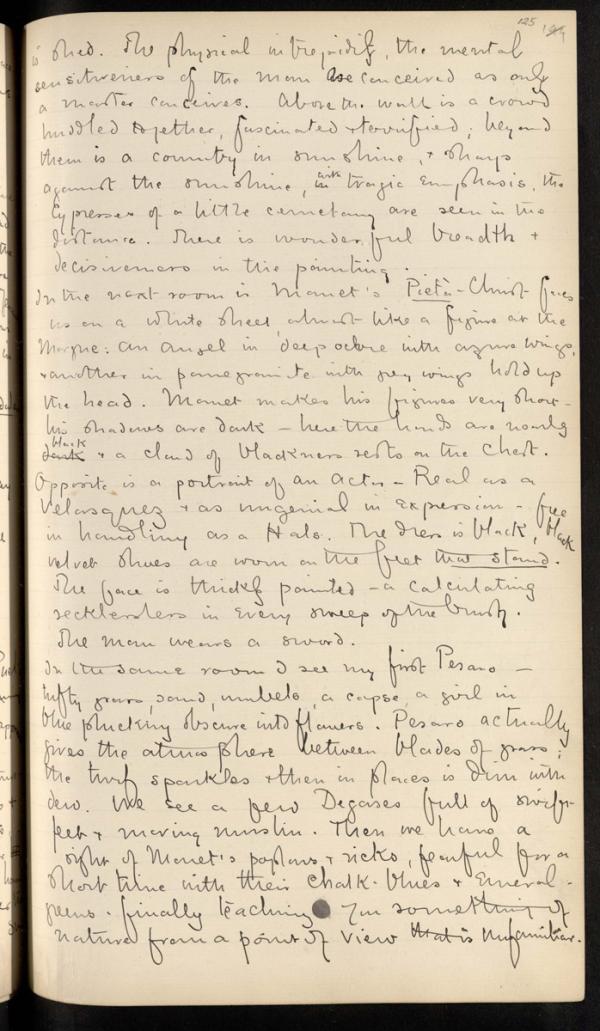 125
is shed. The physical intrepidity, the mental
sensitiveness of the man are conceived as only
a master conceives. Above the wall is a crowd
huddled together, fascinated & terrified; beyond
them is a country in sunshine, & sharp
against the sunshine, with tragic emphasis, the
Cypresses of a little cemetary are seen in the
distance. There is wonderful breadth &
decisiveness in the painting.
In the next room is Manet's Pietà - Christ faces
us on a white sheet, almost like a figure at the
Morgue: an angel in deep ochre with azure wings,
& another in pomegranite with grey wings hold up
the head. Manet makes his figures very short -
his shadows are dark - here the hands are nearly
dark black & a cloud of blackness rests on the chest.
Opposite is a portrait of an actor - Real as a
Velasquez & as ungenial in expression - free
in handling as a Hals. The dress is black, black
velvet shoes are worn on the feet that stand.
The face is thickly painted - a calculating
recklessness in every sweep of the brush.
The man wears a sword.
In the same room I see my first Pesaro -
tufty grass, sand, umbels, a copse, a girl in
blue plucking obscure wild flowers. Pesaro actually
gives the atmosphere between blades of grass;
the turf sparkles & then in places is dim with
dew. We see a few Degases full of swift
feet & moving muslin. Then we have a
sight of Monet's poplars & ricks, fearful for a
short time with their chalk-blues & emeral-
greens. finally teaching you something of
nature from a point of view that is unfamiliar.